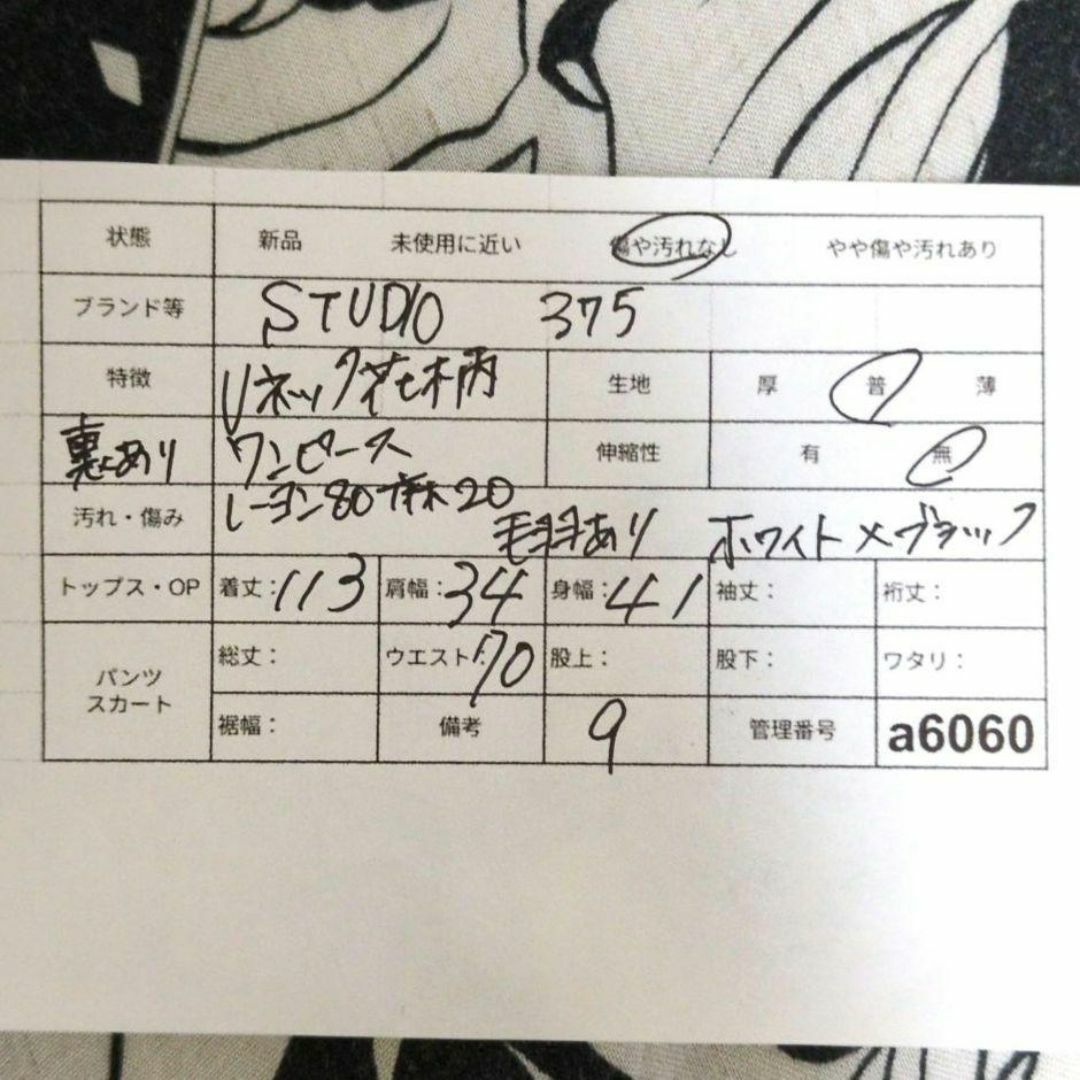 状態 新品 未使用に近い 傷や汚れなし やや傷や汚れあり
ブランド等 STUDIO 375
特徴 Uネック花柄 生地 厚 普 薄
裏にあり ワンピース 伸縮性 有 無
汚れ・傷み レーヨン80 麻20 毛羽あり ホワイト×ブラック
トップス・OP 着丈:113 肩幅:34 身幅:41 袖丈: 裄丈:
パンツ スカート 総丈: ウエスト:70 股上: 股下: ワタリ:
裾幅: 備考 9 管理番号 a6060